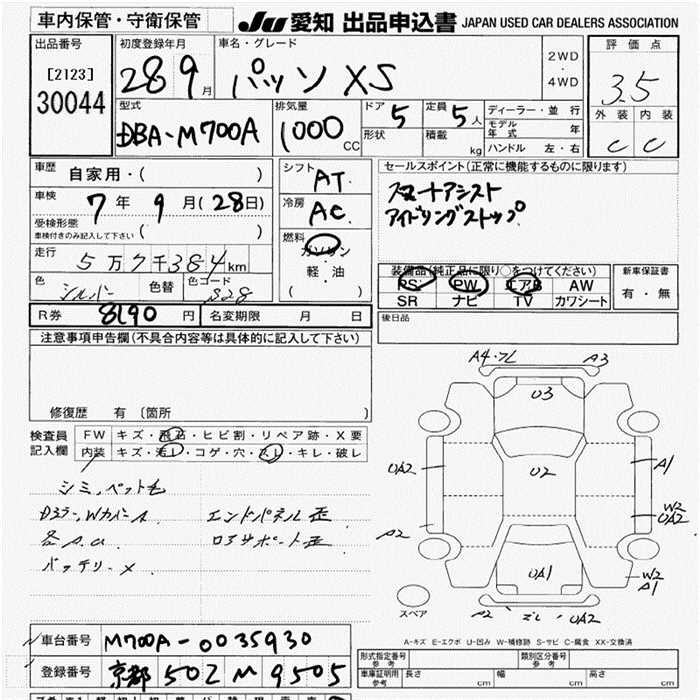 車内保管・守衛保管
JU 愛知 出品申込書 JAPAN USED CAR DEALERS ASSOCIATION
出品番号
[2123]
30044
初度登録年月
28 9月
車名・グレード
パッソ XS
2WD
・
4WD
評価点
3.5
外装 内装
C C
型式
DBA-M700A
排気量
1000 CC
ドア 5
形状
定員 5人
積載 kg
ディーラー・並行
モデル年式 年
ハンドル 左・右
車歴
自家用・( )
車検
7年 9月(28日)
受検形態
車検付きのみ記入して下さい ( )
走行
5万7千384km
色 シルバー 色替 色コード S28
シフト
AT
冷房
AC
燃料
ガソリン
・
軽・油
( )
セールスポイント(正常に機能するものに限ります)
スマートアシスト
アイドリングストップ
装備品(純正品に限り○をつけてください)
PS PW エアB AW
SR ナビ TV カワシート
新車保証書
有・無
R券 8190 円 名変期限 月 日
後日品
注意事項申告欄(不具合内容等は具体的に記入して下さい)
修復歴 有 〔箇所 〕
検査員
記入欄
FW キズ・飛石・ヒビ割・リペア跡・X要
内装 キズ・汚レ・コゲ・穴・スレ・キレ・破レ
シミ、ペット毛
Dミラー、WカバーA エンドパネル歪
各A.U ロアサポート歪
バッテリーX
A4・フレ A3
U3
UA2
U2
A1
W2
UA2
A2
UA1
W2
A1
スペア
A2 UA2
A-キズ E-エクボ U-凹み W-補修跡 S-サビ C-腐食 XX-交換済
車台番号 M700A-0035930
登録番号 京都 502 M 9505
形式指定番号
参考
類別区分番号
参考
車庫証明用
参考
長さ cm 幅 cm 高さ cm